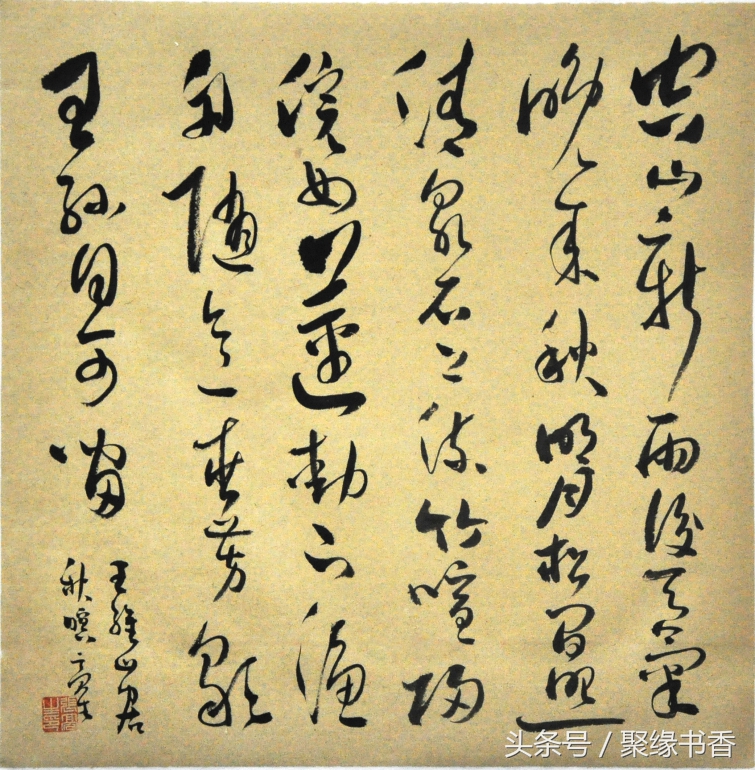 空山新雨後天氣
晚来秋明月松間照
清泉石上流竹喧歸
浣女蓮動下漁
舟随意春芳歇
王孫自可留
王維山居
秋暝
头条号 / 聚缘书香